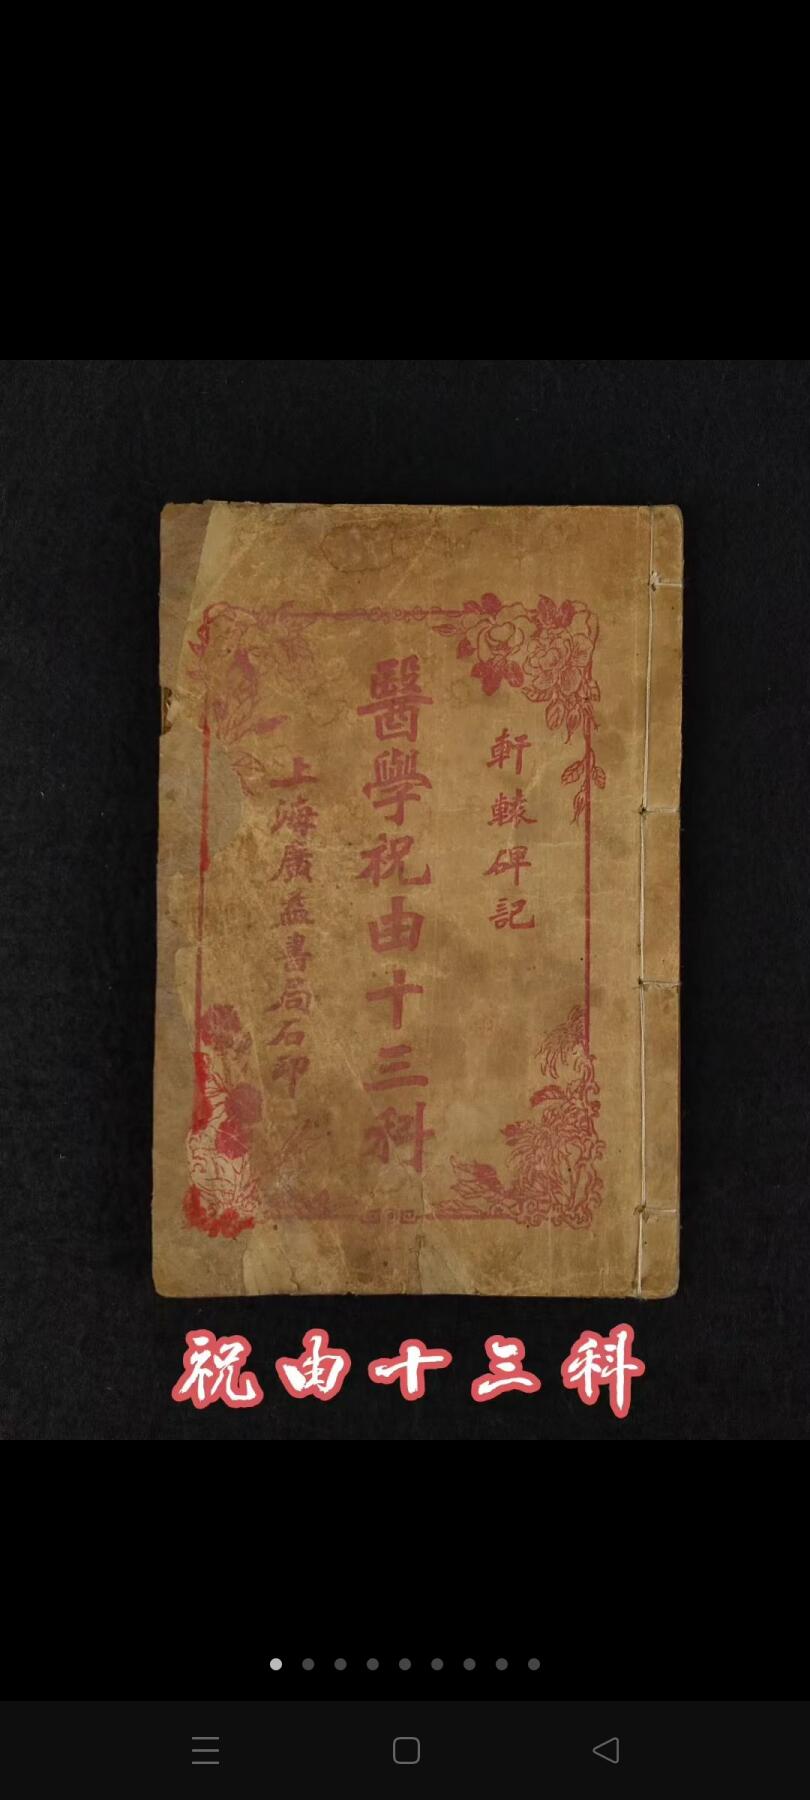 軒轅碑記
醫學祝由十三科
上海廣益書局石印
祝由十三科